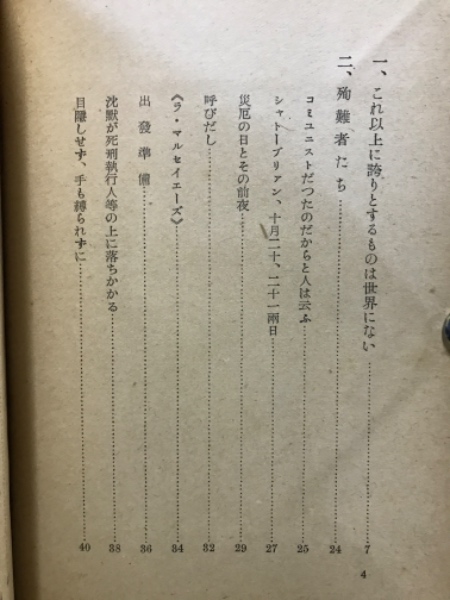 一、これ以上に誇りとするものは世界にない……7
二、殉難者たち……24
コミユニストだつたのだからと人は云ふ……25
シャトーブリアン、十月二十、二十一兩日……27
災厄の日とその前夜……29
呼びだし……32
《ラ・マルセイエーズ》……34
出發準備……36
沈默が死刑執行人等の上に落ちかかる……38
目隱しせず、手も縛られずに……40
4